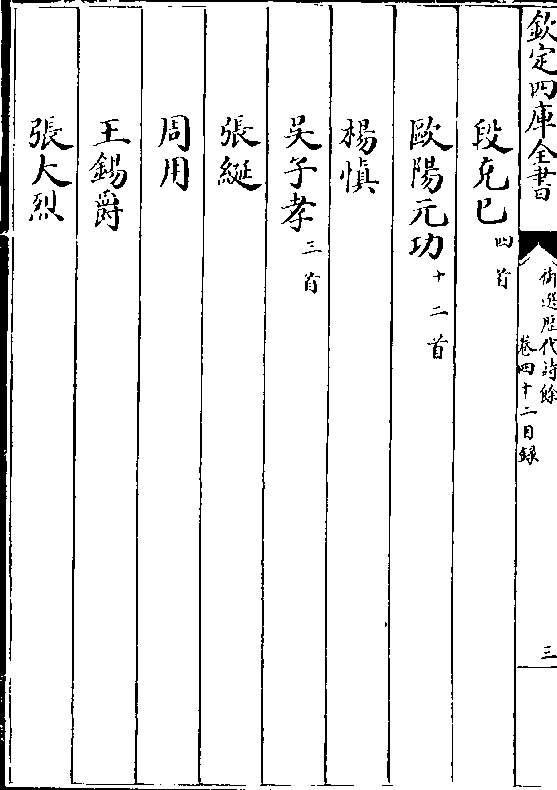 欽定四庫全書
御選歴代詩餘
卷四十二目録
三
段克己四首
歐陽元功十二首
楊慎
吳子孝三首
張綖
周用
王錫爵
張大烈